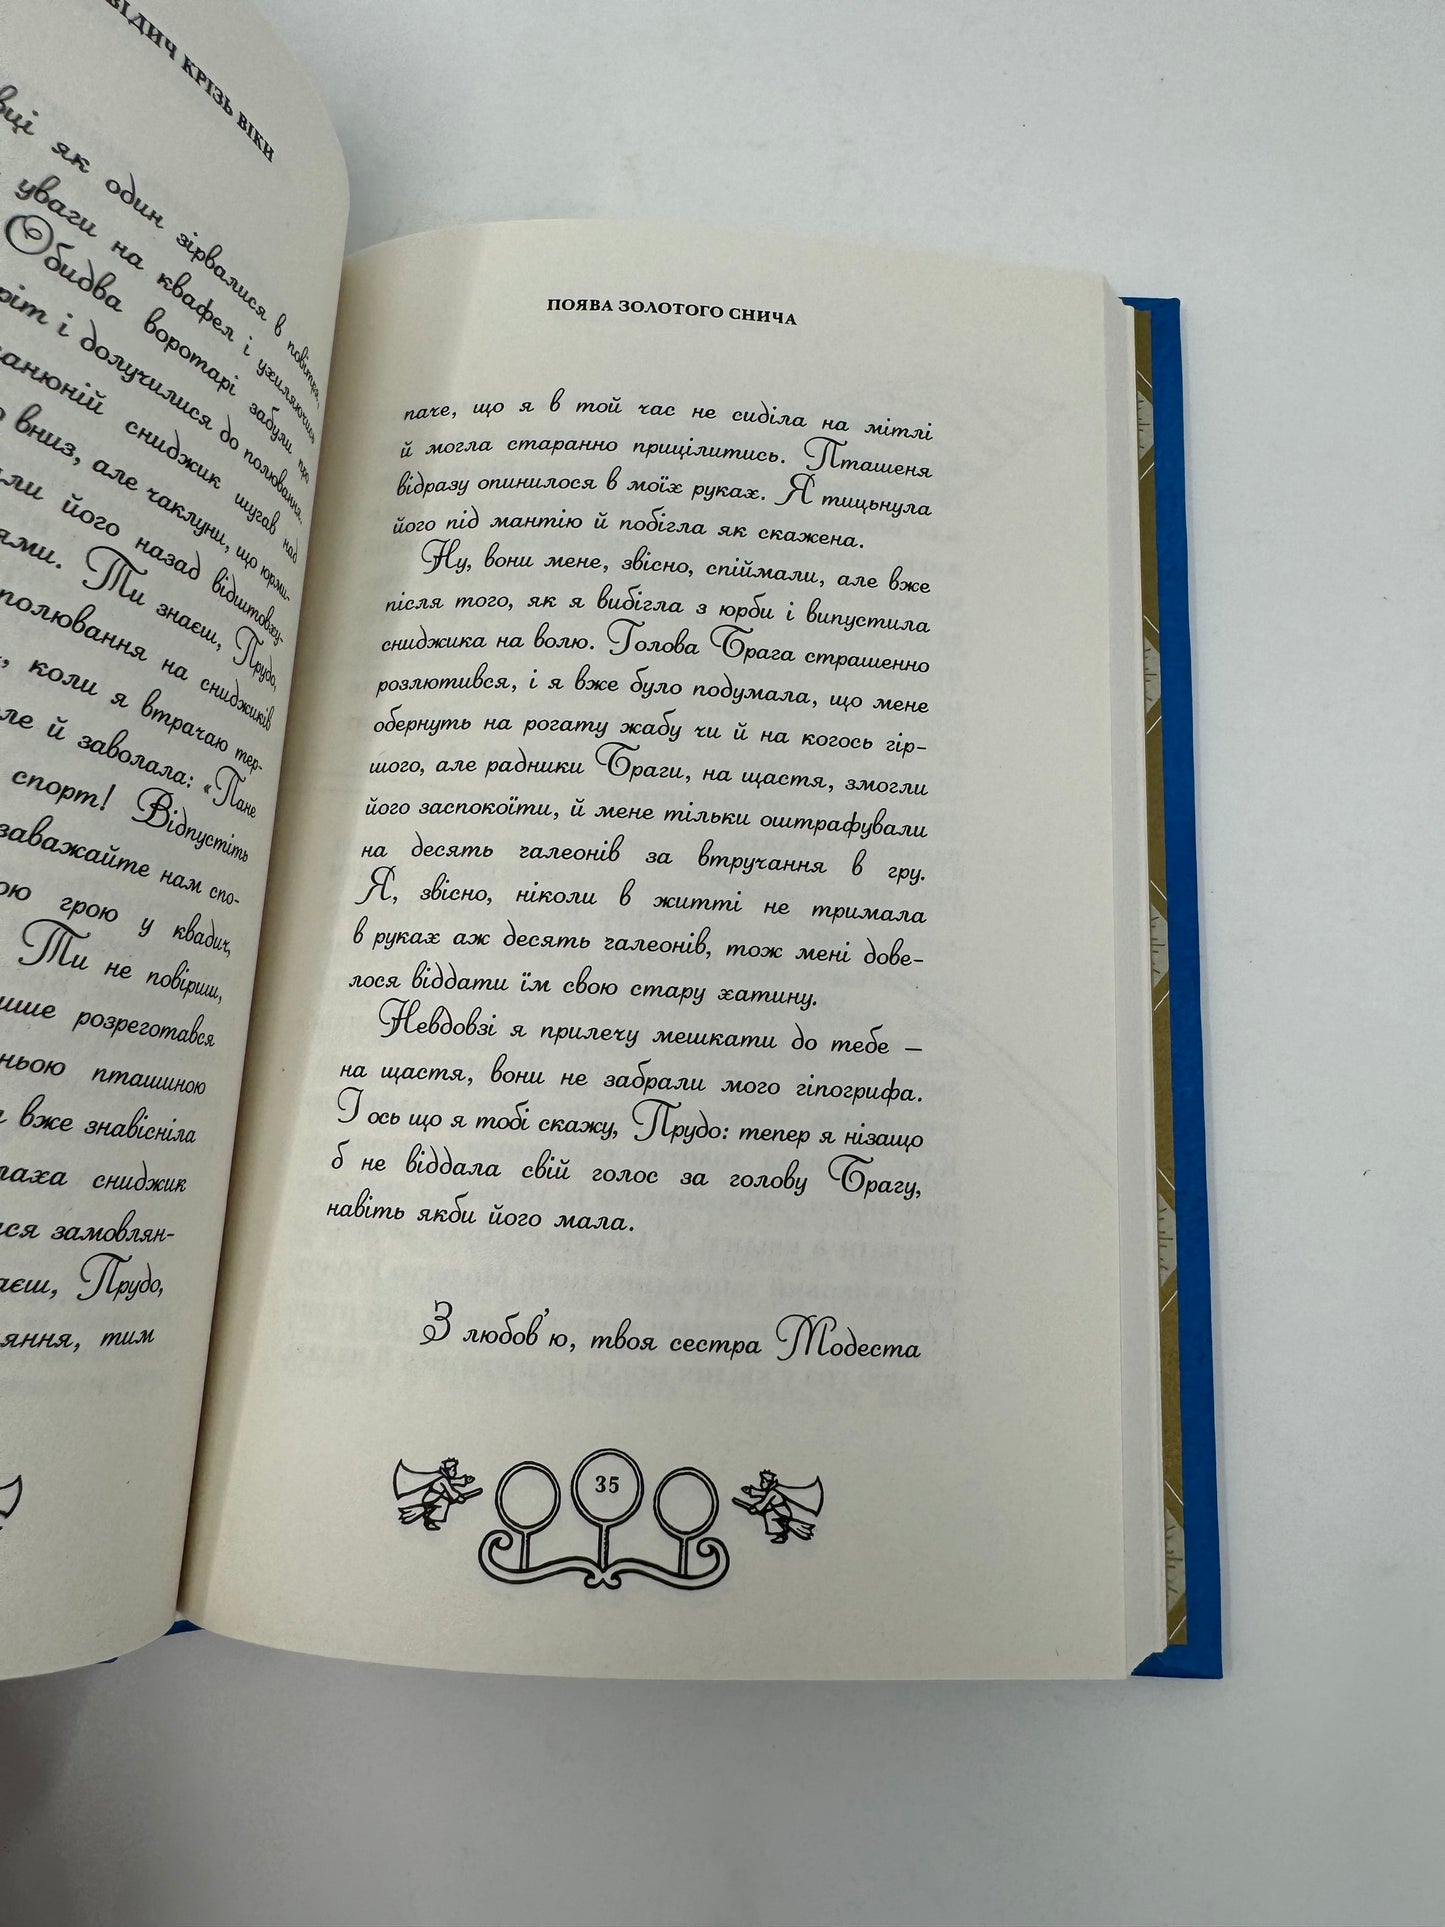 ВІДИЧ КРІЗЬ ВІКИ
як один зірвалися в повітря,
уваги на квафел і ухиляючися
Обидва воротарі забули про
і долучилися до полювання.
сниджик шугав над
вниз, але чаклуни, що юрми-
його назад відштовху-
Ти знаєш, Прудо,
полювання на сниджиків
коли я втрачаю тер-
й заволала: «Пане
спорт! Відпустіть
заважайте нам спо-
грою у квадич,
Ти не повіриш,
розреготався
пташиною
вже знавісніла
сниджик
замовлян-
Прудо,
тим
ПОЯВА ЗОЛОТОГО СНИЧА
паче, що я в той час не сиділа на мітлі
й могла старанно прицілитись. Пташеня
відразу опинилося в моїх руках. Я тицьнула
його під мантію й побігла як скажена.
Ну, вони мене, звісно, спіймали, але вже
після того, як я вибігла з юрби і випустила
сниджика на волю. Голова Брага страшенно
розлютився, і я вже було подумала, що мене
обернуть на рогату жабу чи й на когось гір-
шого, але радники Браги, на щастя, змогли
його заспокоїти, й мене тільки оштрафували
на десять ґалеонів за втручання в гру.
Я, звісно, ніколи в житті не тримала
в руках аж десять ґалеонів, тож мені дове-
лося віддати їм свою стару хатину.
Невдовзі я прилечу мешкати до тебе –
на щастя, вони не забрали мого гіпогрифа.
І ось що я тобі скажу, Прудо: тепер я нізащо
б не віддала свій голос за голову Брагу,
навіть якби його мала.
З любов'ю, твоя сестра Модеста
35